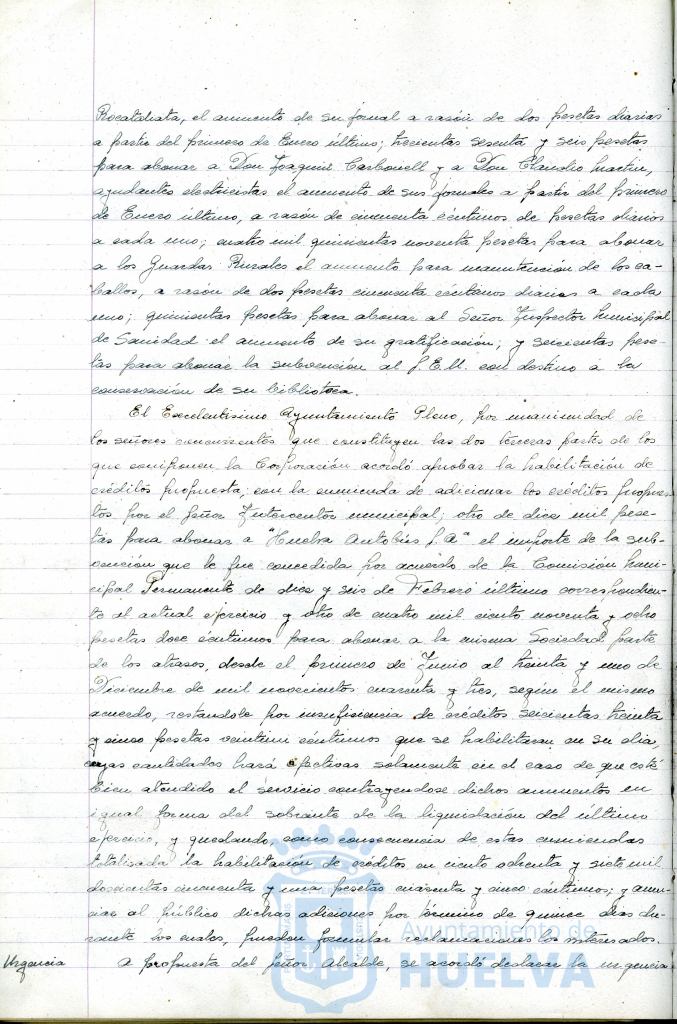 el aumento de su jornal a razón de dos pesetas diarias
a partir del primero de Enero último; trecientas sesenta y seis pesetas
para abonar a Don Joaquin Carbonell y a Don Claudio Martin,
ayudantes electricistas el aumento de sus jornales a partir del primero
de Enero último, a razón de cincuenta céntimos de pesetas diarios
a cada uno; cuatro mil quinientas noventa pesetas para abonar
a los Guardas Rurales el aumento para manutención de los ca-
ballos, a razón de dos pesetas cincuenta céntimos diarios a cada
uno; quinientas pesetas para abonar al Señor Inspector Municipal
de Sanidad el aumento de su gratificación; y seicientas pese-
tas para abonar la subvención al S.E.U. con destino a la
conservación de su biblioteca.
El Excelentísimo Ayuntamiento Pleno, por unanimidad de
los señores concurrentes que constituyen las dos terceras partes de los
que componen la Corporación acordó aprobar la habilitación de
créditos propuesta; con la enmienda de adicionar los créditos propues-
tos por el Señor Interventor municipal; otro de diez mil pese-
tas para abonar a "Huelva Autobús S.A" el importe de la sub-
vención que le fue concedida por acuerdo de la Comisión Muni-
cipal Permanente de diez y seis de Febrero último correspondien-
te al actual ejercicio y otro de cuatro mil ciento noventa y ocho
pesetas doce céntimos para abonar a la misma Sociedad parte
de los atrasos, desde el primero de Junio al treinta y uno de
Diciembre de mil novecientos cuarenta y tres, según el mismo
acuerdo, restandole por insuficiencia de créditos seicientas treinta
y cinco pesetas veintiun céntimos que se habilitaran en su dia,
cuyas cantidades hará efectivas solamente en el caso de que esté
bien atendido el servicio contrayendose dichos aumentos en
igual forma del sobrante de la liquidación del último
ejercicio, y quedando, como consecuencia de estas enmiendas
totalizada la habilitación de créditos en ciento ochenta y siete mil
doscientas cincuenta y una pesetas cuarenta y cinco céntimos; y anun-
ciar al público dichas adiciones por término de quince dias du-
rante los cuales, puedan formular reclamaciones los interesados.
Urgencia A propuesta del Señor Alcalde, se acordó declarar la urgencia
Ayuntamiento de
HUELVA